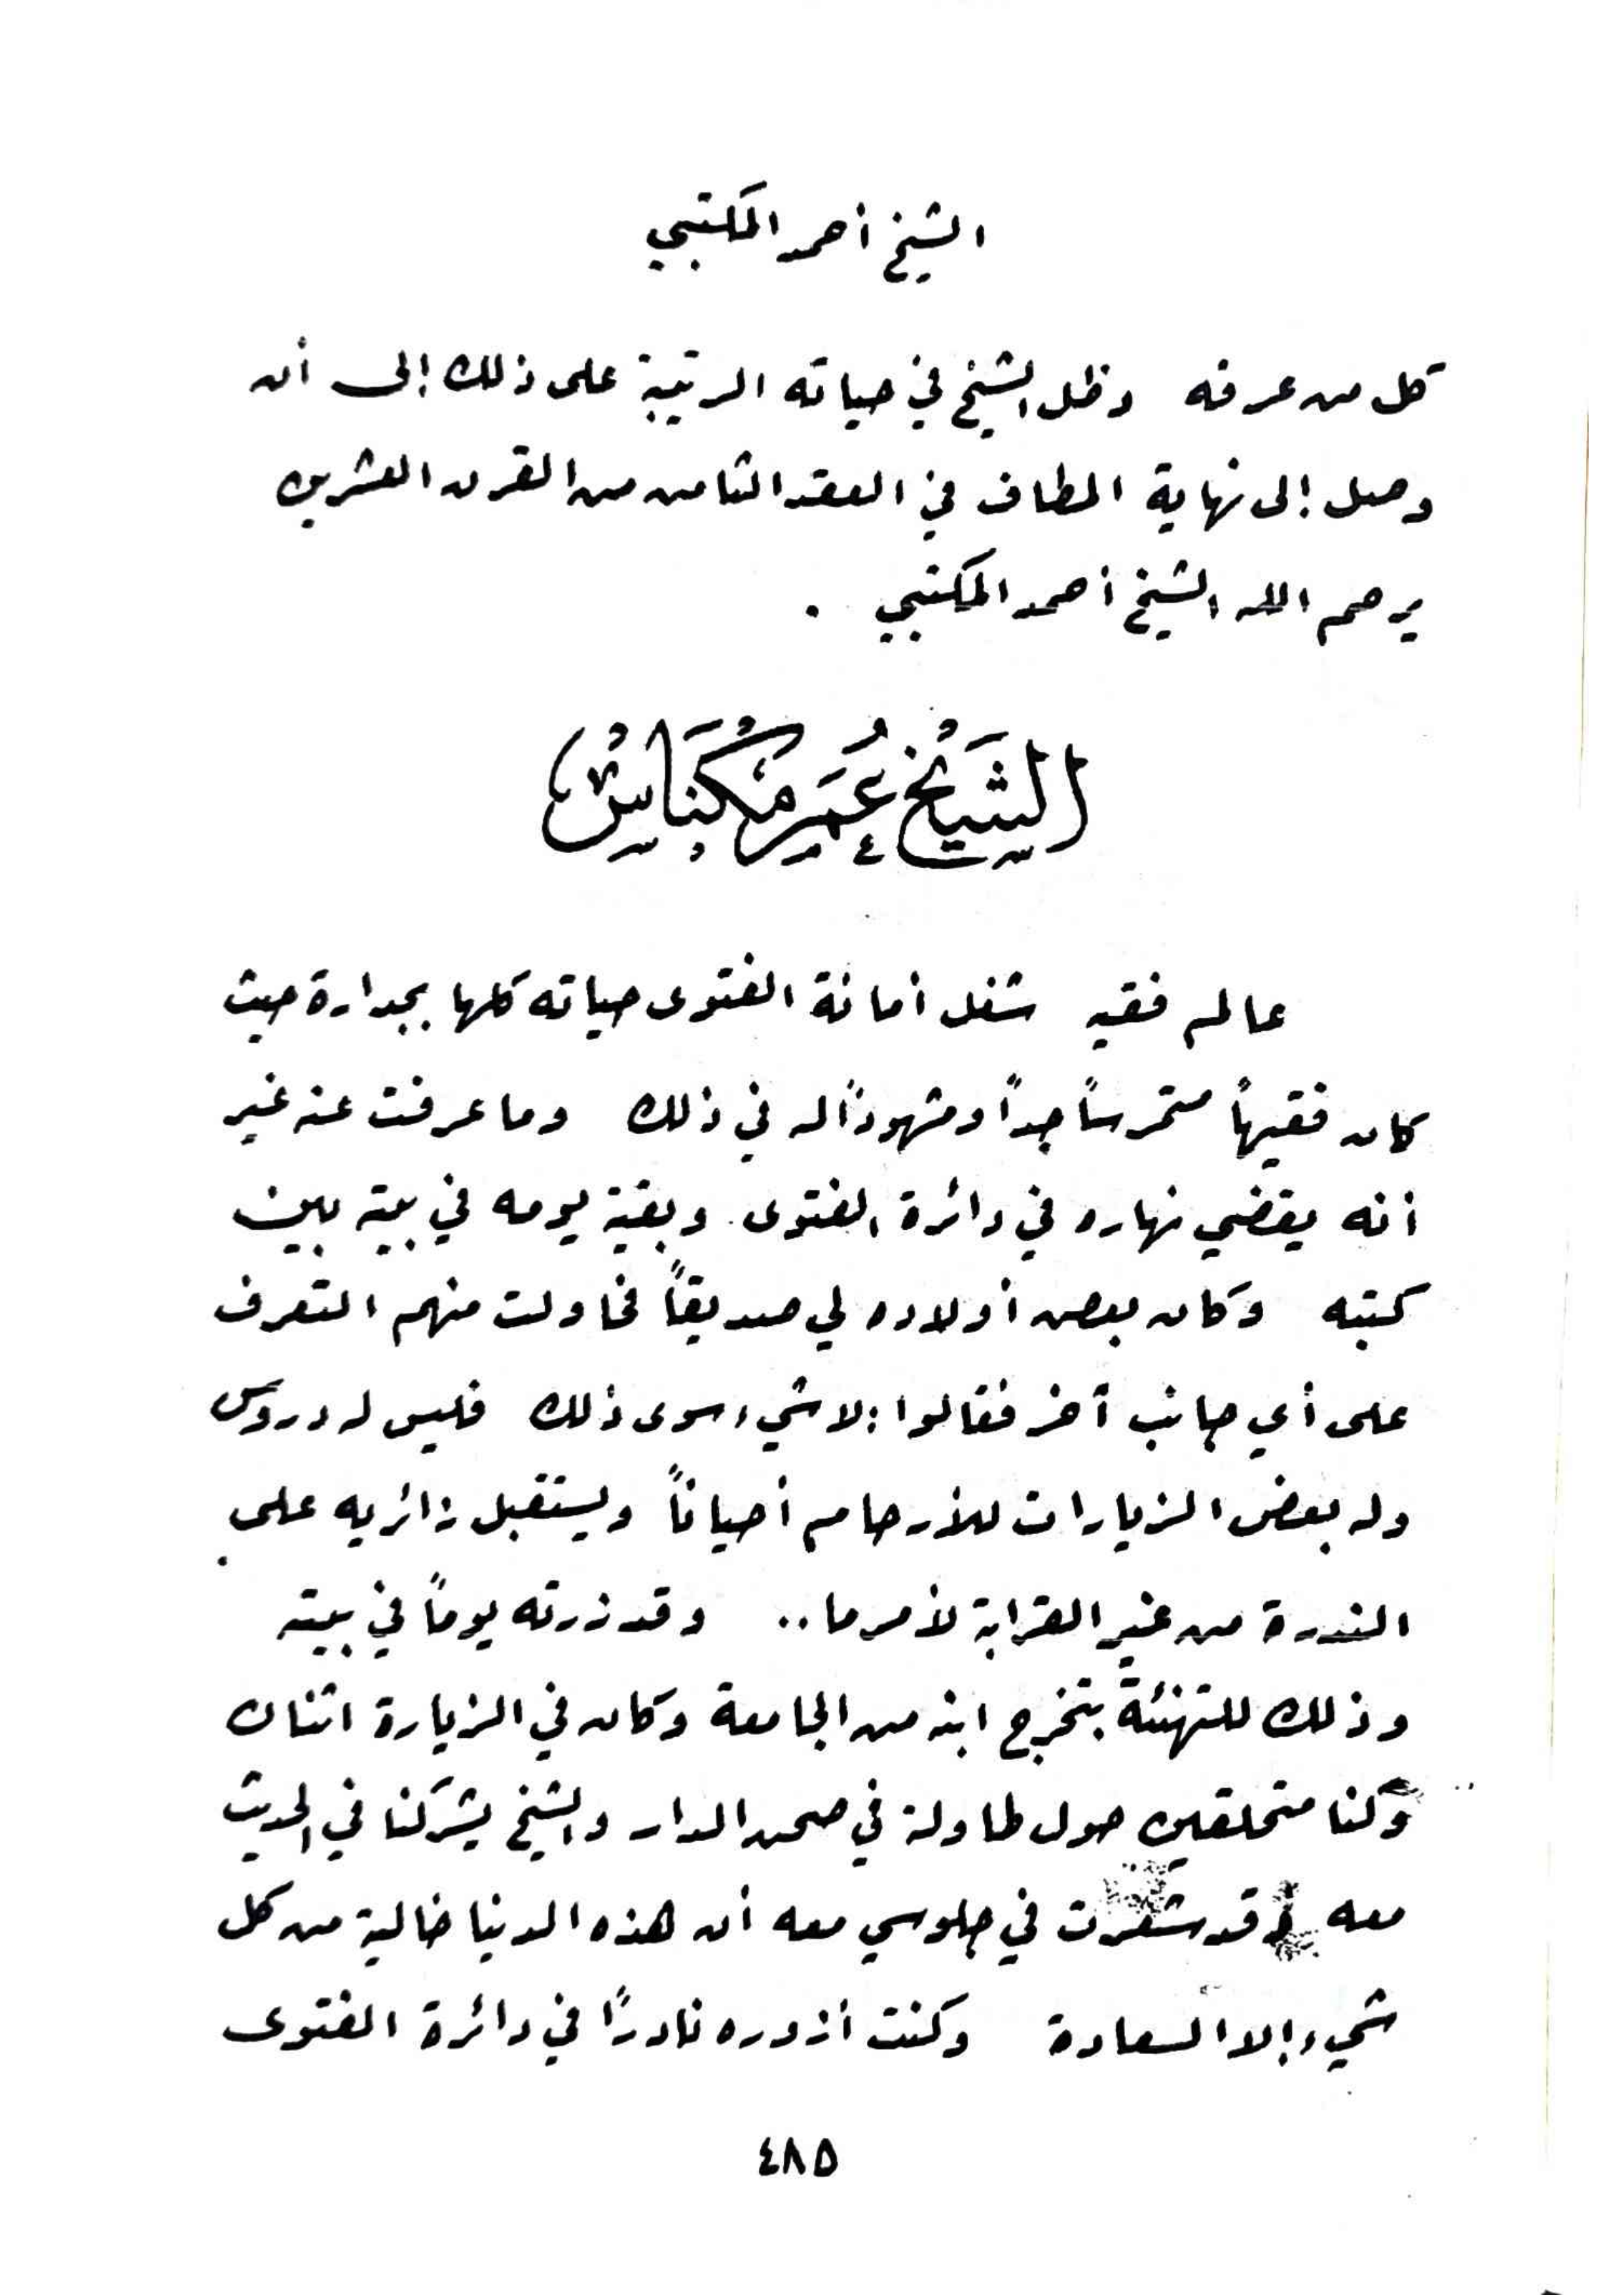 الشيخ أحمد المكتبي
كل من عرفه وظل الشيخ في حياته الرتيبة على ذلك إلى أن
وصل إلى نهاية المطاف في العقد الثامن من القرن العشرين
يرحم الله الشيخ أحمد المكتبي .
الشَيْخ عُمَر مَكْنَاسْ
عالم فقيه شغل أمانة الفتوى حياته كلها بجدارة حيث
كان فقيهاً متمرساً جداً ومشهوداً له في ذلك وما عرفت عنه غير
أنه يقضي نهاره في دائرة الفتوى وبقية يومه في بيته بين
كتبه وكان بعض أولاده لي صديقاً فحاولت منهم التعرف
على أي جانب آخر فقالوا : لا شيء سوى ذلك فليس له دروس
وله بعض الزيارات للأرحام أحياناً ويستقبل زائريه على
الندرة من غير القرابة لأمر ما .. وقد زرته يوماً في بيته
وذلك للتهنئة بتخرج ابنه من الجامعة وكان في الزيارة اثنان
وكنا متحلقين حول طاولة في صحن الدار والشيخ يشركنا في الحديث
معه وقد شعرت في جلوسي معه أن هذه الدنيا خالية من كل
شيء إلا السعادة وكنت أزوره نادراً في دائرة الفتوى
٤٨٥